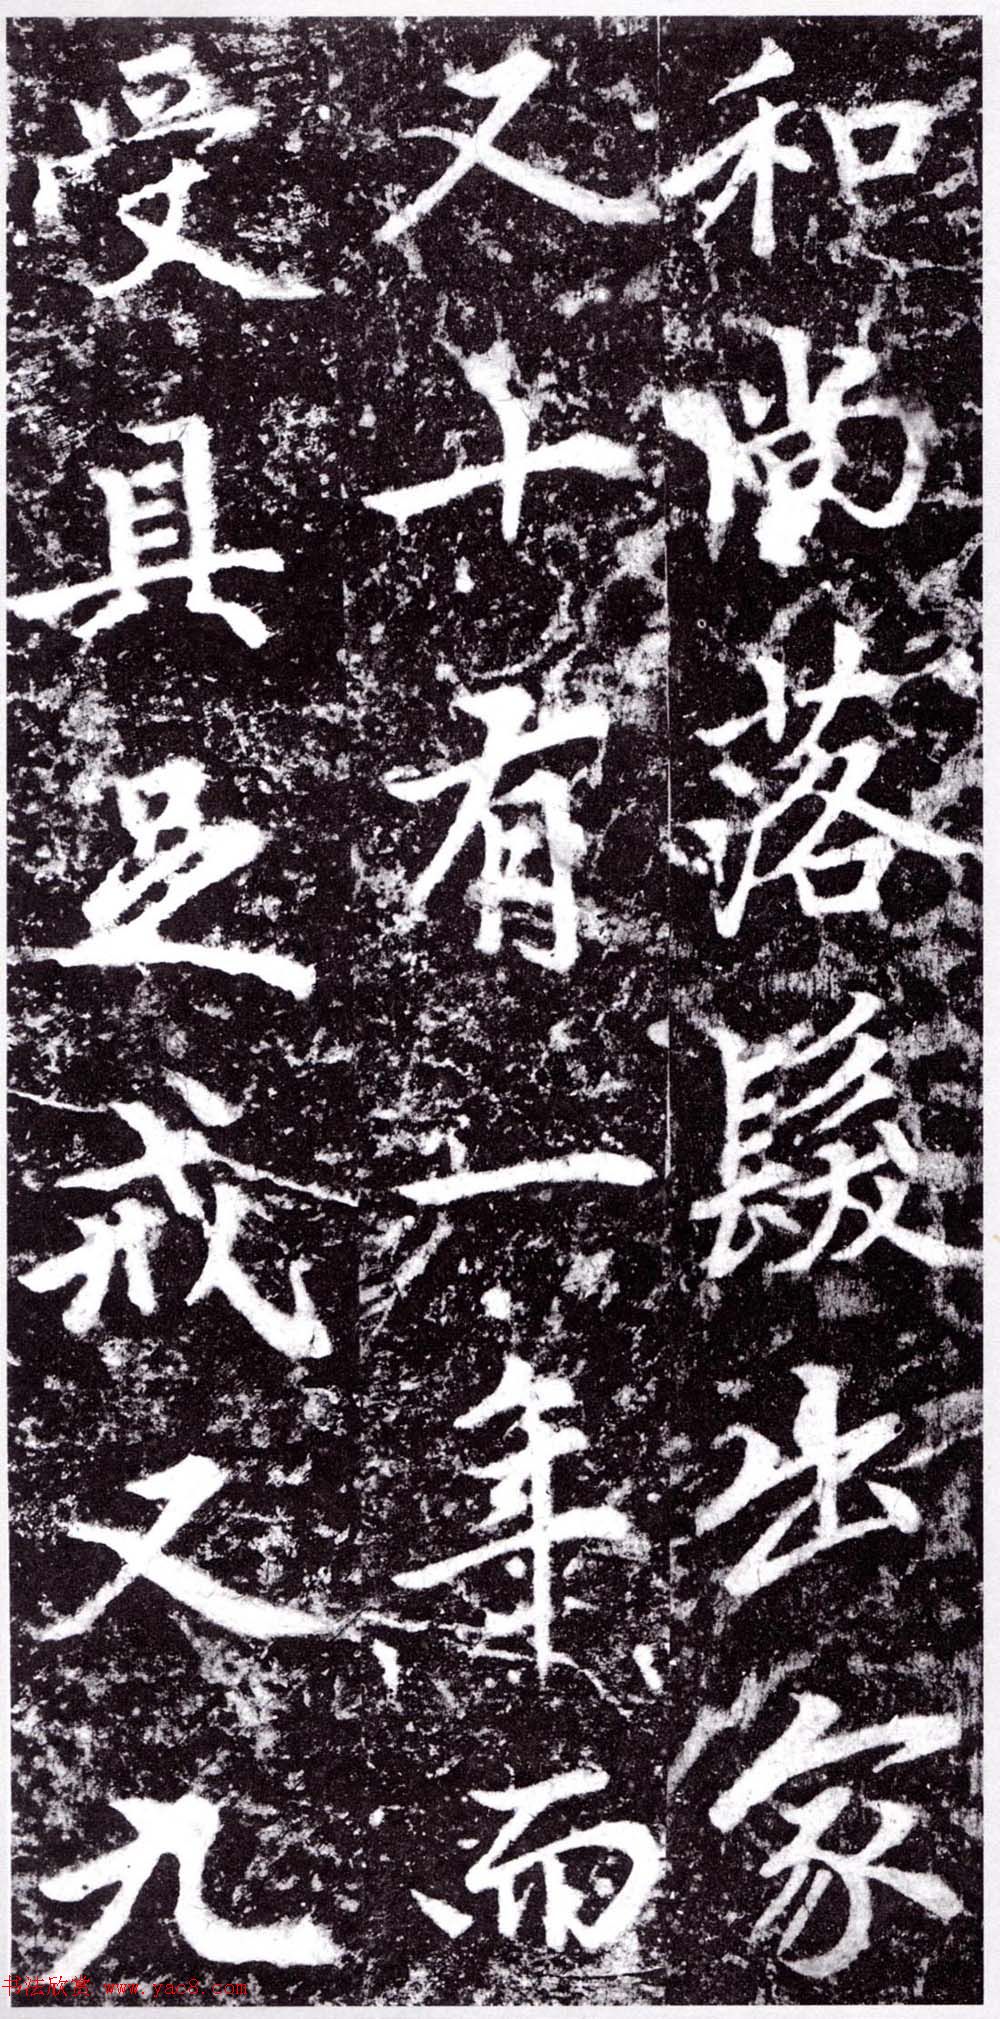 和尚落髮出家
又十有一年而
受具足戒又九
书法欣赏 www.yac8.com